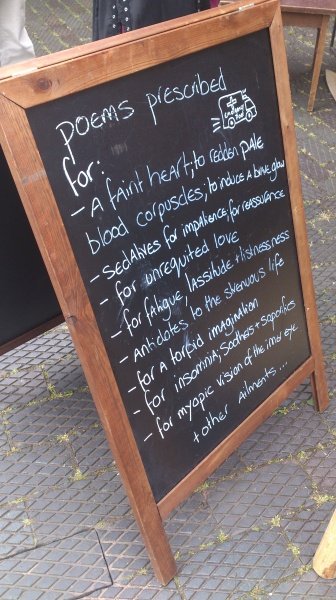 poems prescribed
for:
- A faint heart; to redden pale
blood corpuscles; to induce a brave glow
- sedatives for impatience; for reassurance
- for unrequited love
- for fatigue, lassitude + listlessness
- Antidotes to the strenuous life
- for a torpid imagination
- for insomnia, soothers + soporifics
- for myopic vision of the inner eye
+ other ailments....